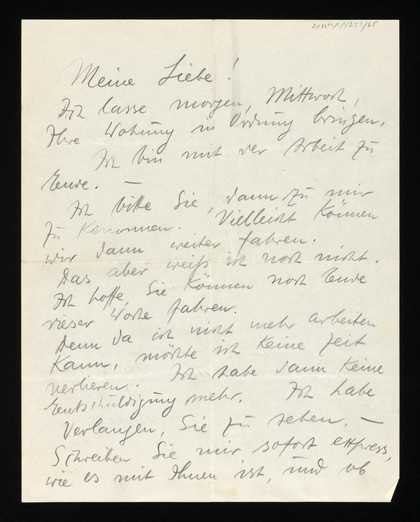 Meine Liebe!
Ich lasse morgen, Mittwoch,
Ihre Wohnung in Ordnung bringen.
Ich bin mit der Arbeit zu
Ende. —
Ich bitte Sie, dann zu mir
zu kommen. Vielleicht können
wir dann weiter fahren.
Das aber weiß ich noch nicht.
Ich hoffe, Sie können noch Ende
dieser Woche fahren.
Denn da ich nicht mehr arbeiten
kann, möchte ich keine Zeit
verlieren. Ich habe dann keine
Entschuldigung mehr. Ich habe
Verlangen, Sie zu sehen. —
Schreiben Sie mir sofort express,
wie es mit Ihnen ist, und ob